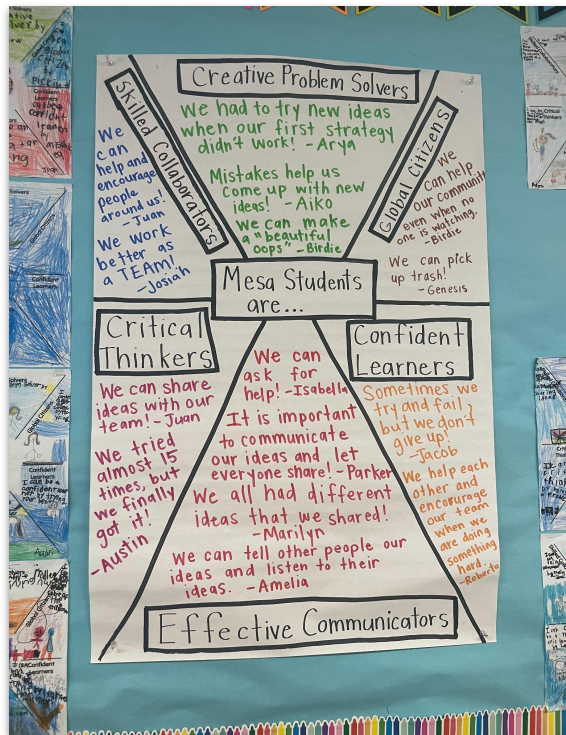 Creative Problem Solvers
We had to try new ideas
when our first strategy
didn't work! -Arya
Mistakes help us
come up with new
ideas! -Aiko
We can make
a "beautiful
oops" -Birdie
Skilled Collaborators
We
can
help and
encourage
people
around us!
-Juan
We work
better as
a TEAM!
-Josiah
Global Citizens
We
can help
our community
even when no
one is watching.
-Birdie
We can pick
up trash!
-Genesis
Mesa Students
are...
Critical
Thinkers
We can share
ideas with our
team! -Juan
We tried
almost 15
times, but
we finally
got it!
-Austin
Confident
Learners
Sometimes we
try and fail,
but we don't
give up!
-Jacob
We help each
other and
encourage
our team
when we
are doing
something
hard.
-Roberto
We can
ask for
help! -Isabella
It is important
to communicate
our ideas and let
everyone share! -Parker
We all had different
ideas that we shared!
-Marilyn
We can tell other people our
ideas and listen to their
ideas. -Amelia
Effective Communicators